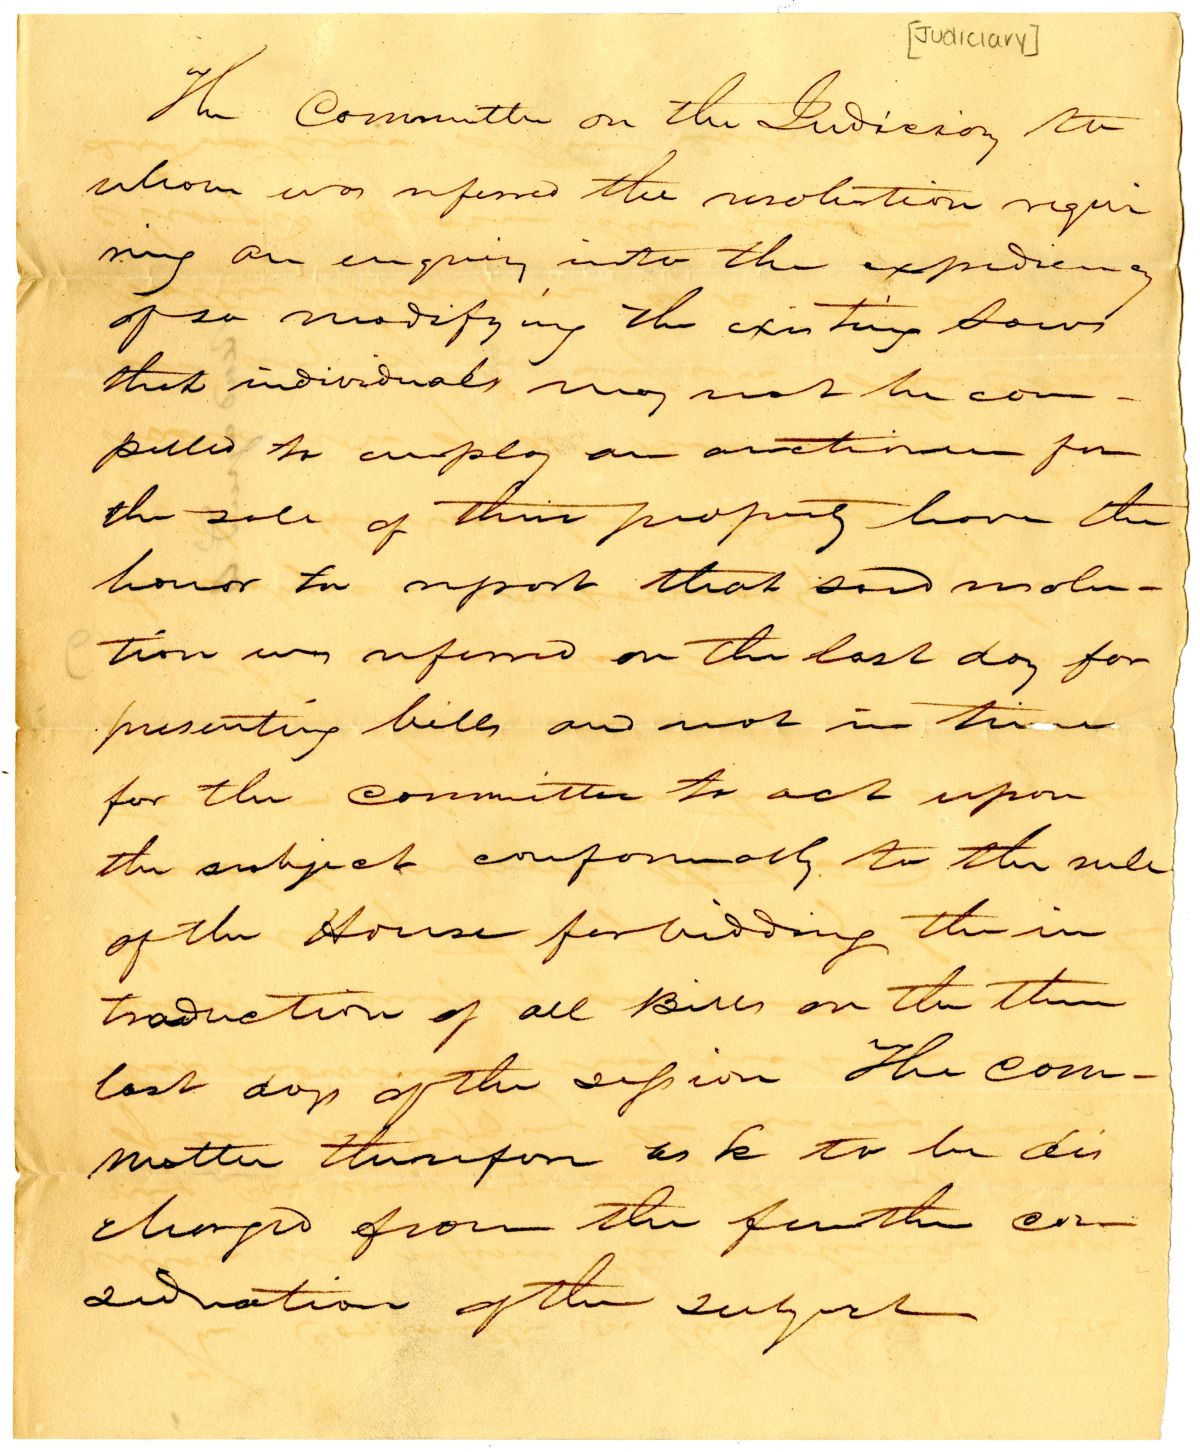 [Judiciary]
The Committee on the Judiciary to
whom was referred the resolution requi
ring an enquiry into the expediency
of so modifying the existing Laws
that individuals may not be com-
pelled to employ an auctioneer for
the sale of their property have the
honor to report that said resolu-
tion was referred on the last day for
presenting bills and not in time
for the committee to act upon
the subject conformably to the rule
of the House forbidding the in
troduction of all Bills on the three
last days of the session The Com-
mittee therefore ask to be dis
charged from the further con
sideration of the subject